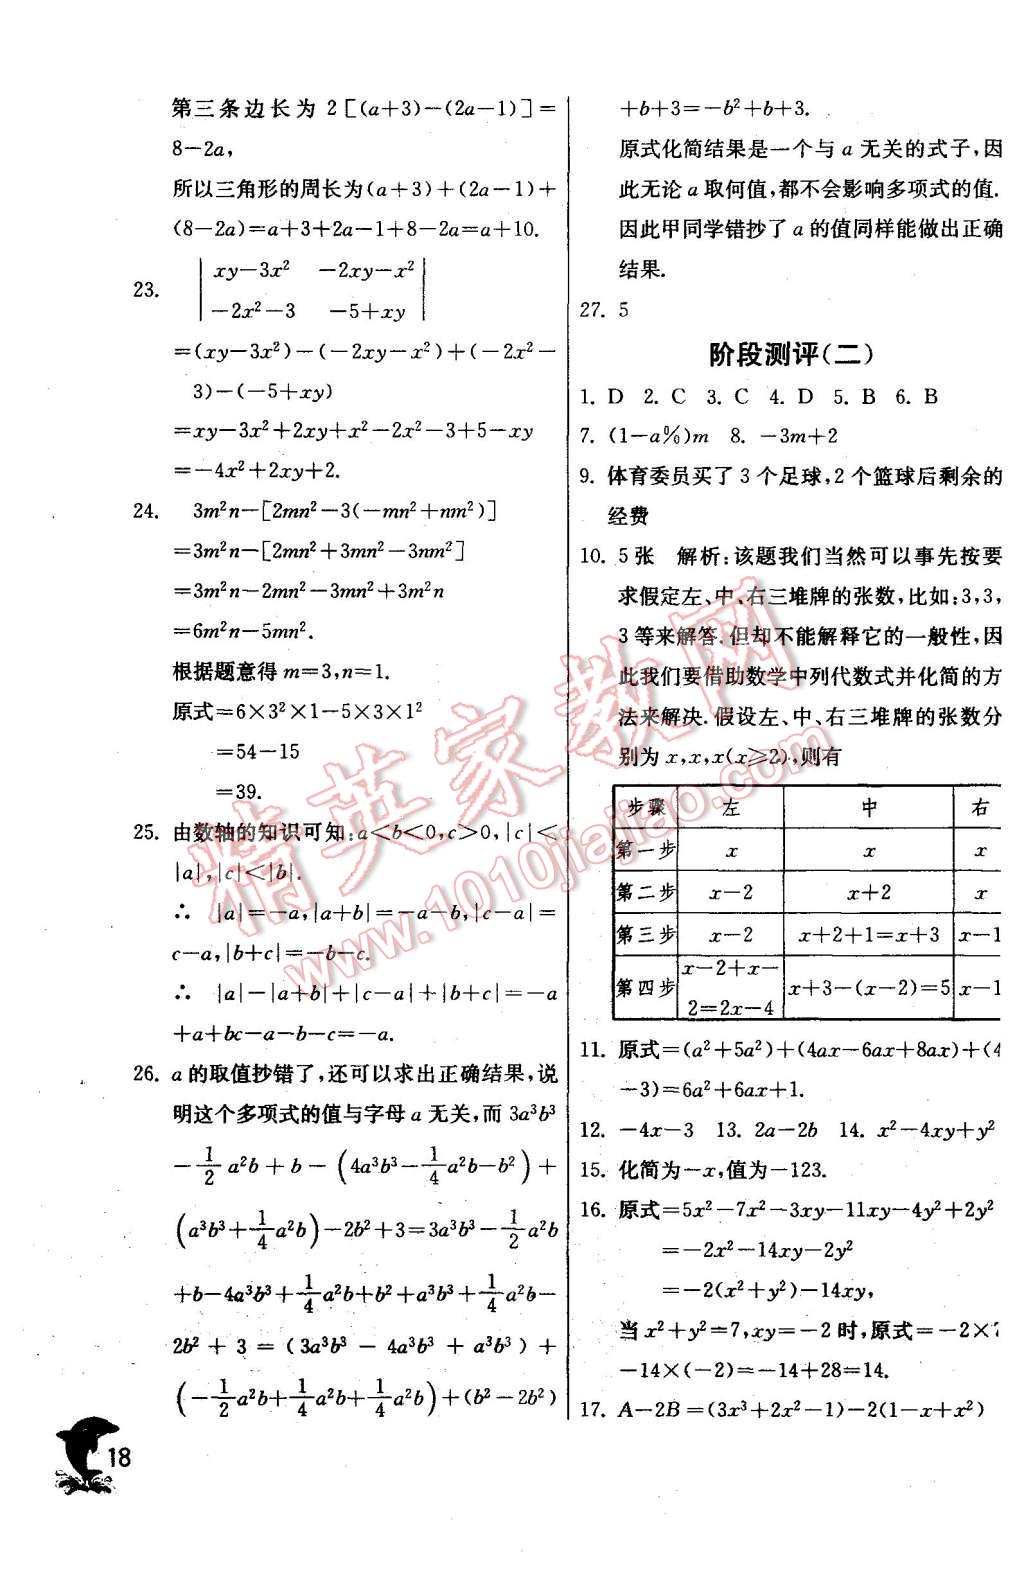 第三条边长为 2[(a+3)-(2a-1)]=
8-2a,
所以三角形的周长为(a+3)+(2a-1)+
(8-2a)=a+3+2a-1+8-2a=a+10.
23. | xy-3x² -2xy-x² |
| -2x²-3 -5+xy |
=(xy-3x²)-(-2xy-x²)+(-2x²-
3)-(-5+xy)
=xy-3x²+2xy+x²-2x²-3+5-xy
=-4x²+2xy+2.
24. 3m²n-[2mn²-3(-mn²+nm²)]
=3m²n-[2mn²+3mn²-3nm²]
=3m²n-2mn²-3mn²+3m²n
=6m²n-5mn².
根据题意得 m=3,n=1.
原式=6×3²×1-5×3×1²
=54-15
=39.
25. 由数轴的知识可知:a<b<0,c>0,|c|<
|a|,|c|<|b|.
∴ |a|=-a,|a+b|=-a-b,|c-a|=
c-a,|b+c|=-b-c.
∴ |a|-|a+b|+|c-a|+|b+c|=-a
+a+bc-a-b-c=-a.
26. a 的取值抄错了,还可以求出正确结果,说
明这个多项式的值与字母 a 无关,而 3a³b³
-1/2a²b+b-(4a³b³-1/4a²b-b²)+
(a³b³+1/4a²b)-2b²+3=3a³b³-1/2a²b
+b-4a³b³+1/4a²b+b²+a³b³+1/4a²b-
2b²+3=(3a³b³-4a³b³+a³b³)+
(-1/2a²b+1/4a²b+1/4a²b)+(b²-2b²)
18
+b+3=-b²+b+3.
原式化简结果是一个与 a 无关的式子,因
此无论 a 取何值,都不会影响多项式的值.
因此甲同学错抄了 a 的值同样能做出正确
结果.
27. 5
阶段测评(二)
1. D 2. C 3. C 4. D 5. B 6. B
7. (1-a%)m 8. -3m+2
9. 体育委员买了 3 个足球,2 个篮球后剩余的
经费
10. 5 张 解析:该题我们当然可以事先按要
求假定左、中、右三堆牌的张数,比如:3,3,
3 等来解答.但却不能解释它的一般性,因
此我们要借助数学中列代数式并化简的方
法来解决.假设左、中、右三堆牌的张数分
别为 x,x,x(x≥2),则有
步骤 左 中 右
第一步 x x x
第二步 x-2 x+2 x
第三步 x-2 x+2+1=x+3 x-1
第四步 x-2+x-2=2x-4 x+3-(x-2)=5 x-1
11. 原式=(a²+5a²)+(4ax-6ax+8ax)+(4
-3)=6a²+6ax+1.
12. -4x-3 13. 2a-2b 14. x²-4xy+y²
15. 化简为-x,值为-123.
16. 原式=5x²-7x²-3xy-11xy-4y²+2y²
=-2x²-14xy-2y²
=-2(x²+y²)-14xy,
当 x²+y²=7,xy=-2 时,原式=-2×7
-14×(-2)=-14+28=14.
17. A-2B=(3x³+2x²-1)-2(1-x+x²)
精英家教网
www.1010jiajiao.com